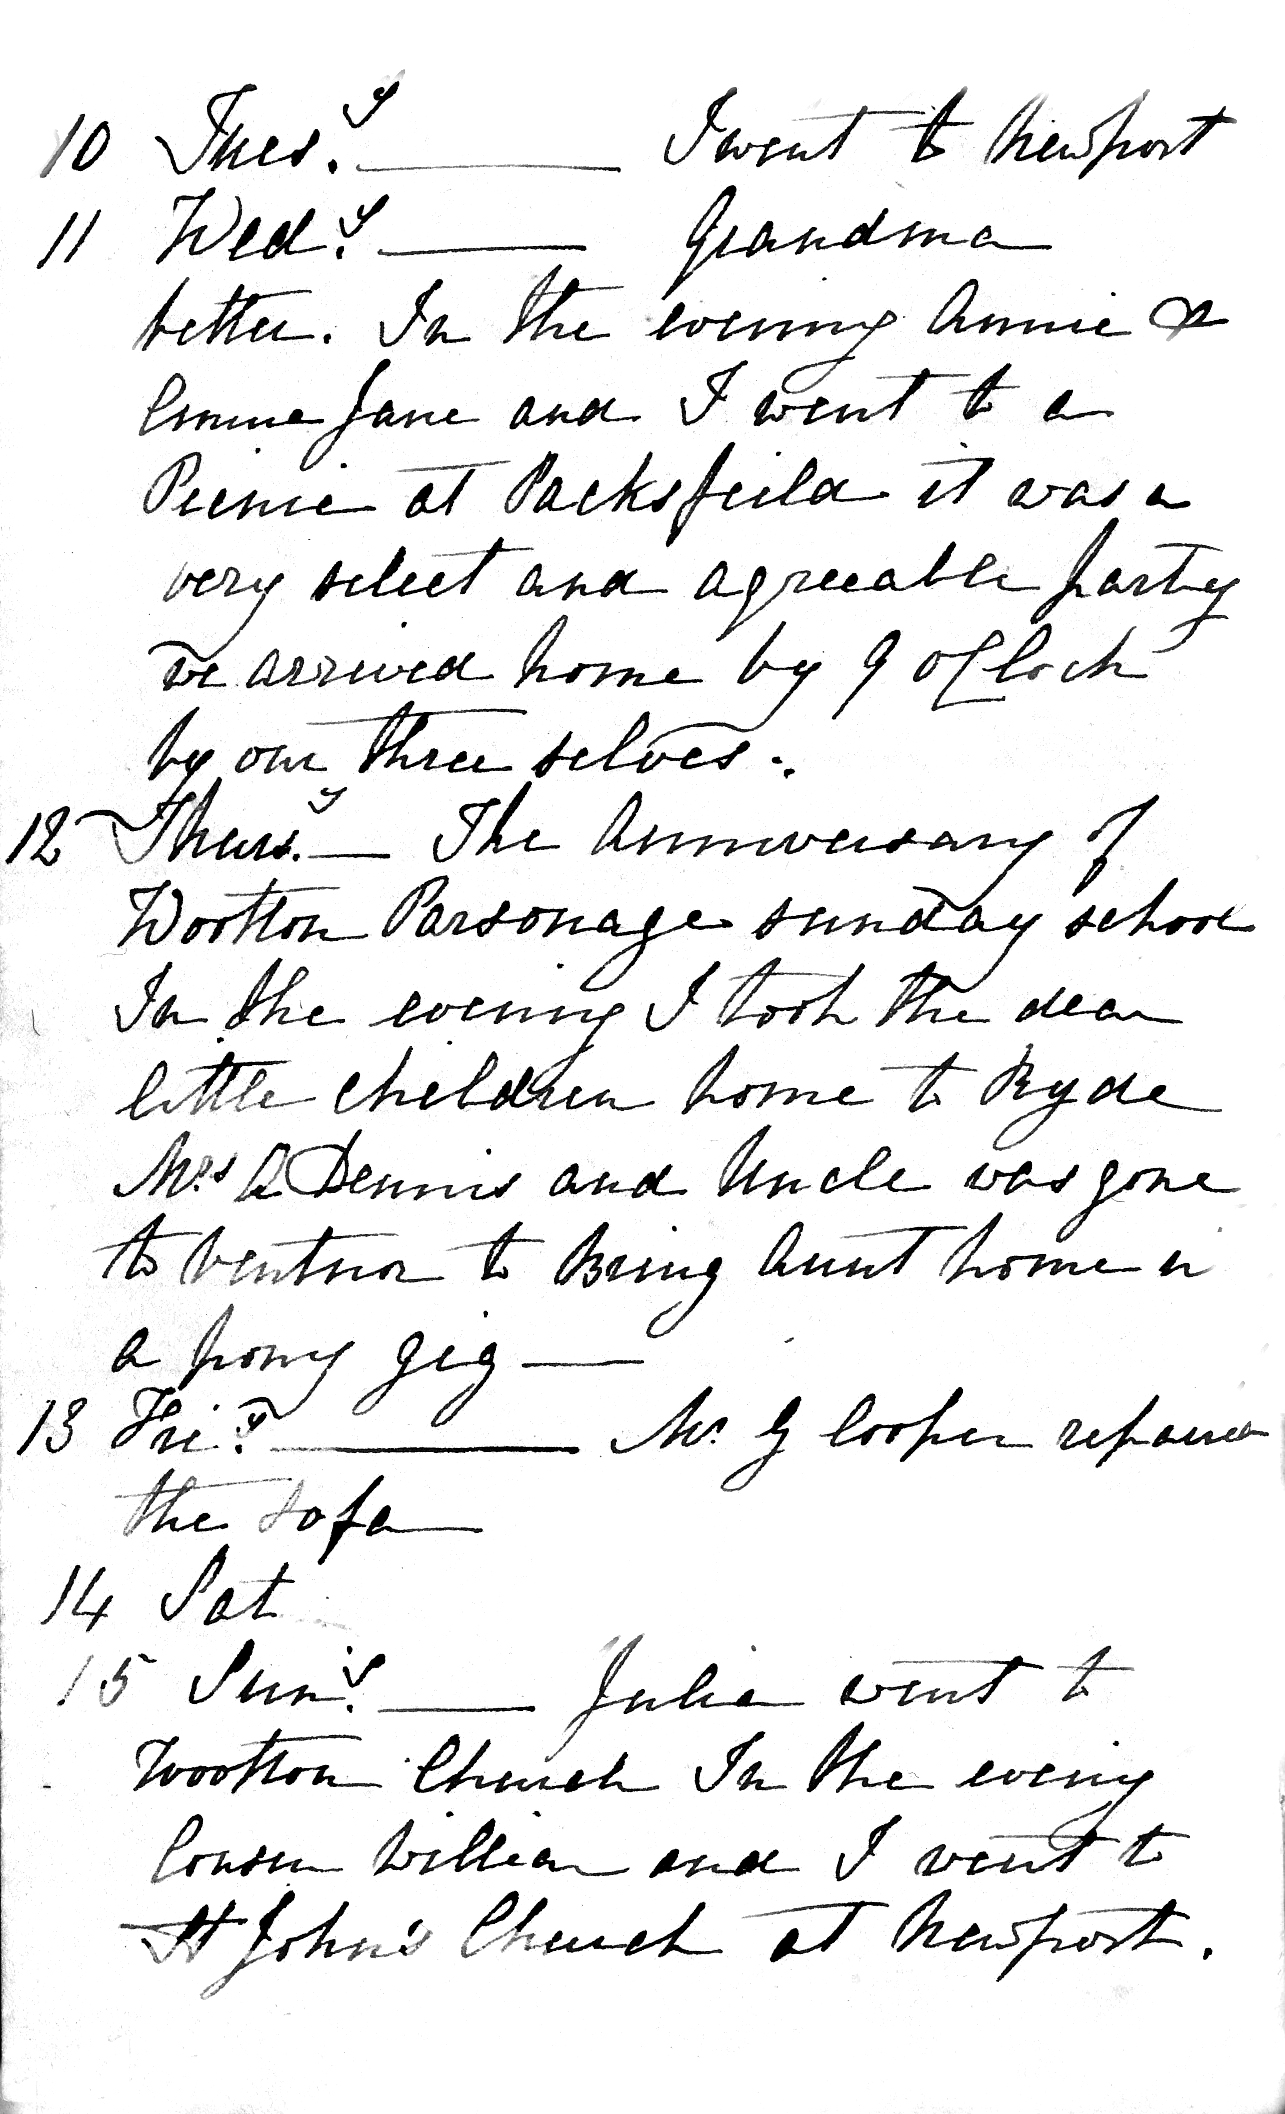 10 Tues.y ——— I went to Newport
11 Wed.y ——— Grandma
better. In the evening Annie &
Emma Jane and I went to a
Picnic at Packsfeild it was a
very select and agreeable party
we arrived home by 9 oClock
by our three selves.
12 Thurs.y — The Anniversary of
Wootton Parsonage sunday school
In the evening I took the dear
little children home to Ryde
Mrs Dennis and Uncle was gone
to Ventnor to Bring Aunt home in
a pony gig —
13 Fri.y ——— Mr. G Cooper repaired
the sofa
14 Sat
15 Sun.y ——— Julia went to
Wootton Church In the evening
Cousin William and I went to
St John's Church at Newport.